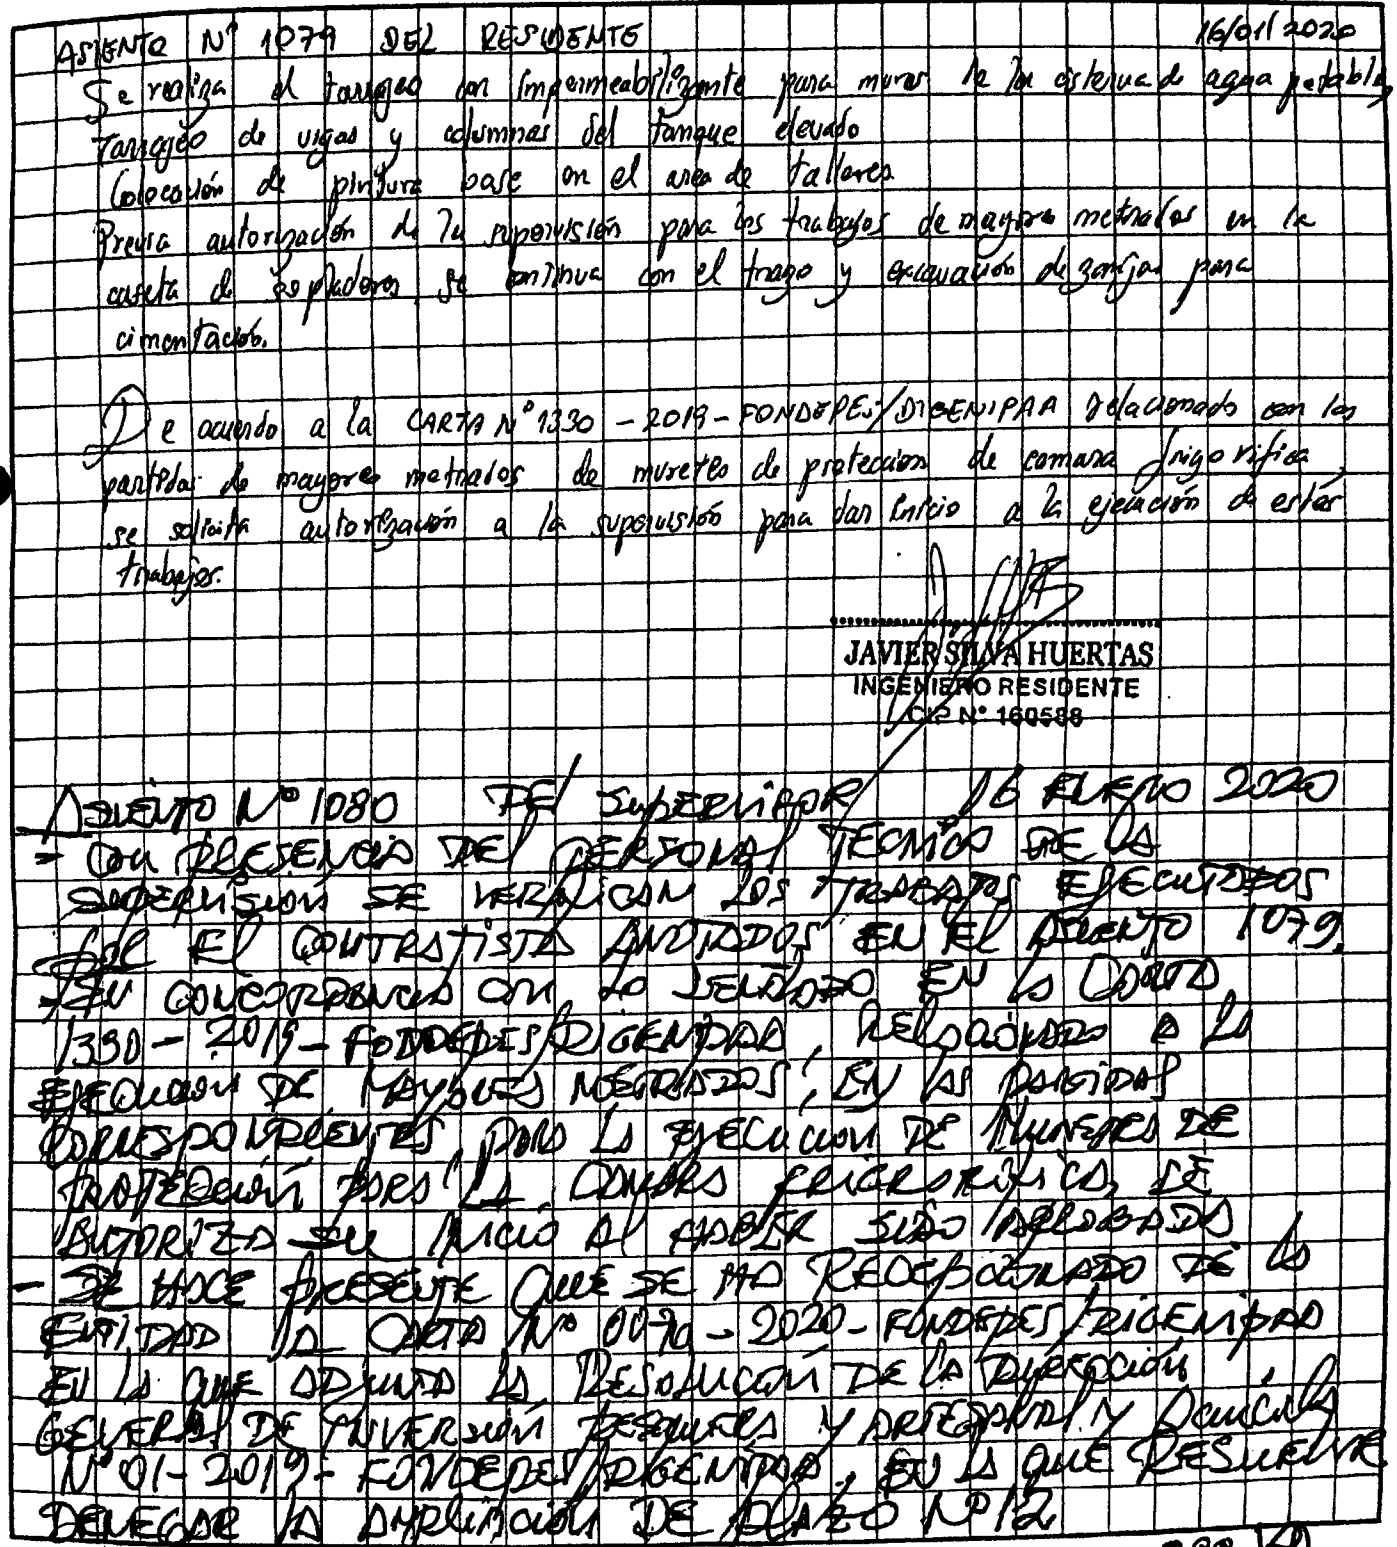 ASIENTO N° 1079 DEL RESIDENTE 16/01/2020
Se realiza el tarrajeo con impermeabilizante para muros de la cisterna de agua potable,
Tarrajeo de vigas y columnas del tanque elevado
Colocación de pintura base en el area de talleres
Previa autorización de la supervisión para los trabajos de mayores metrados en la
caseta de sopladores, se continua con el trazo y excavación de zanjas para
cimentación.
De acuerdo a la CARTA N° 1330 - 2019 - FONDEPES/DIGENIPAA relacionado con las
partidas de mayores metrados de muretes de protección de camara frigorifica,
se solicita autorización a la supervisión para dar inicio a la ejecución de estos
trabajos.
JAVIER SILVA HUERTAS
INGENIERO RESIDENTE
CIP N° 160588
ASIENTO N° 1080 DEL SUPERVISOR 16 ENERO 2020
- CON PRESENCIA DEL PERSONAL TECNICO DE LA
SUPERVISION SE VERIFICAN LOS TRABAJOS EJECUTADOS
POR EL CONTRATISTA ANOTADOS EN EL ASIENTO 1079.
- EN CONCORDANCIA CON LO SEÑALADO EN LA CARTA
1330 - 2019 - FONDEPES/DIGENIPAA, RELACIONADO A LA
EJECUCION DE MAYORES METRADOS, EN LAS PARTIDAS
CORRESPONDIENTES, PARA LA EJECUCION DE MURETES DE
PROTECCION PARA LA CAMARA FRIGORIFICA, SE
AUTORIZA SU INICIO AL HABER SIDO APROBADA
- SE HACE PRESENTE QUE SE HA RECEPCIONADO DE LA
ENTIDAD LA CARTA N° - 2020 - FONDEPES/DIGENIPAA
EN LA QUE ADJUNTA LA RESOLUCION DE LA DIRECCIÓN
GENERAL DE INVERSION PESQUERA Y ARTESANAL Y ACUICOLA
N° 01 - 2019 - FONDEPES/DIGENIPAA, EN LA QUE RESUELVE
DENEGAR LA AMPLIACION DE PLAZO N° 12